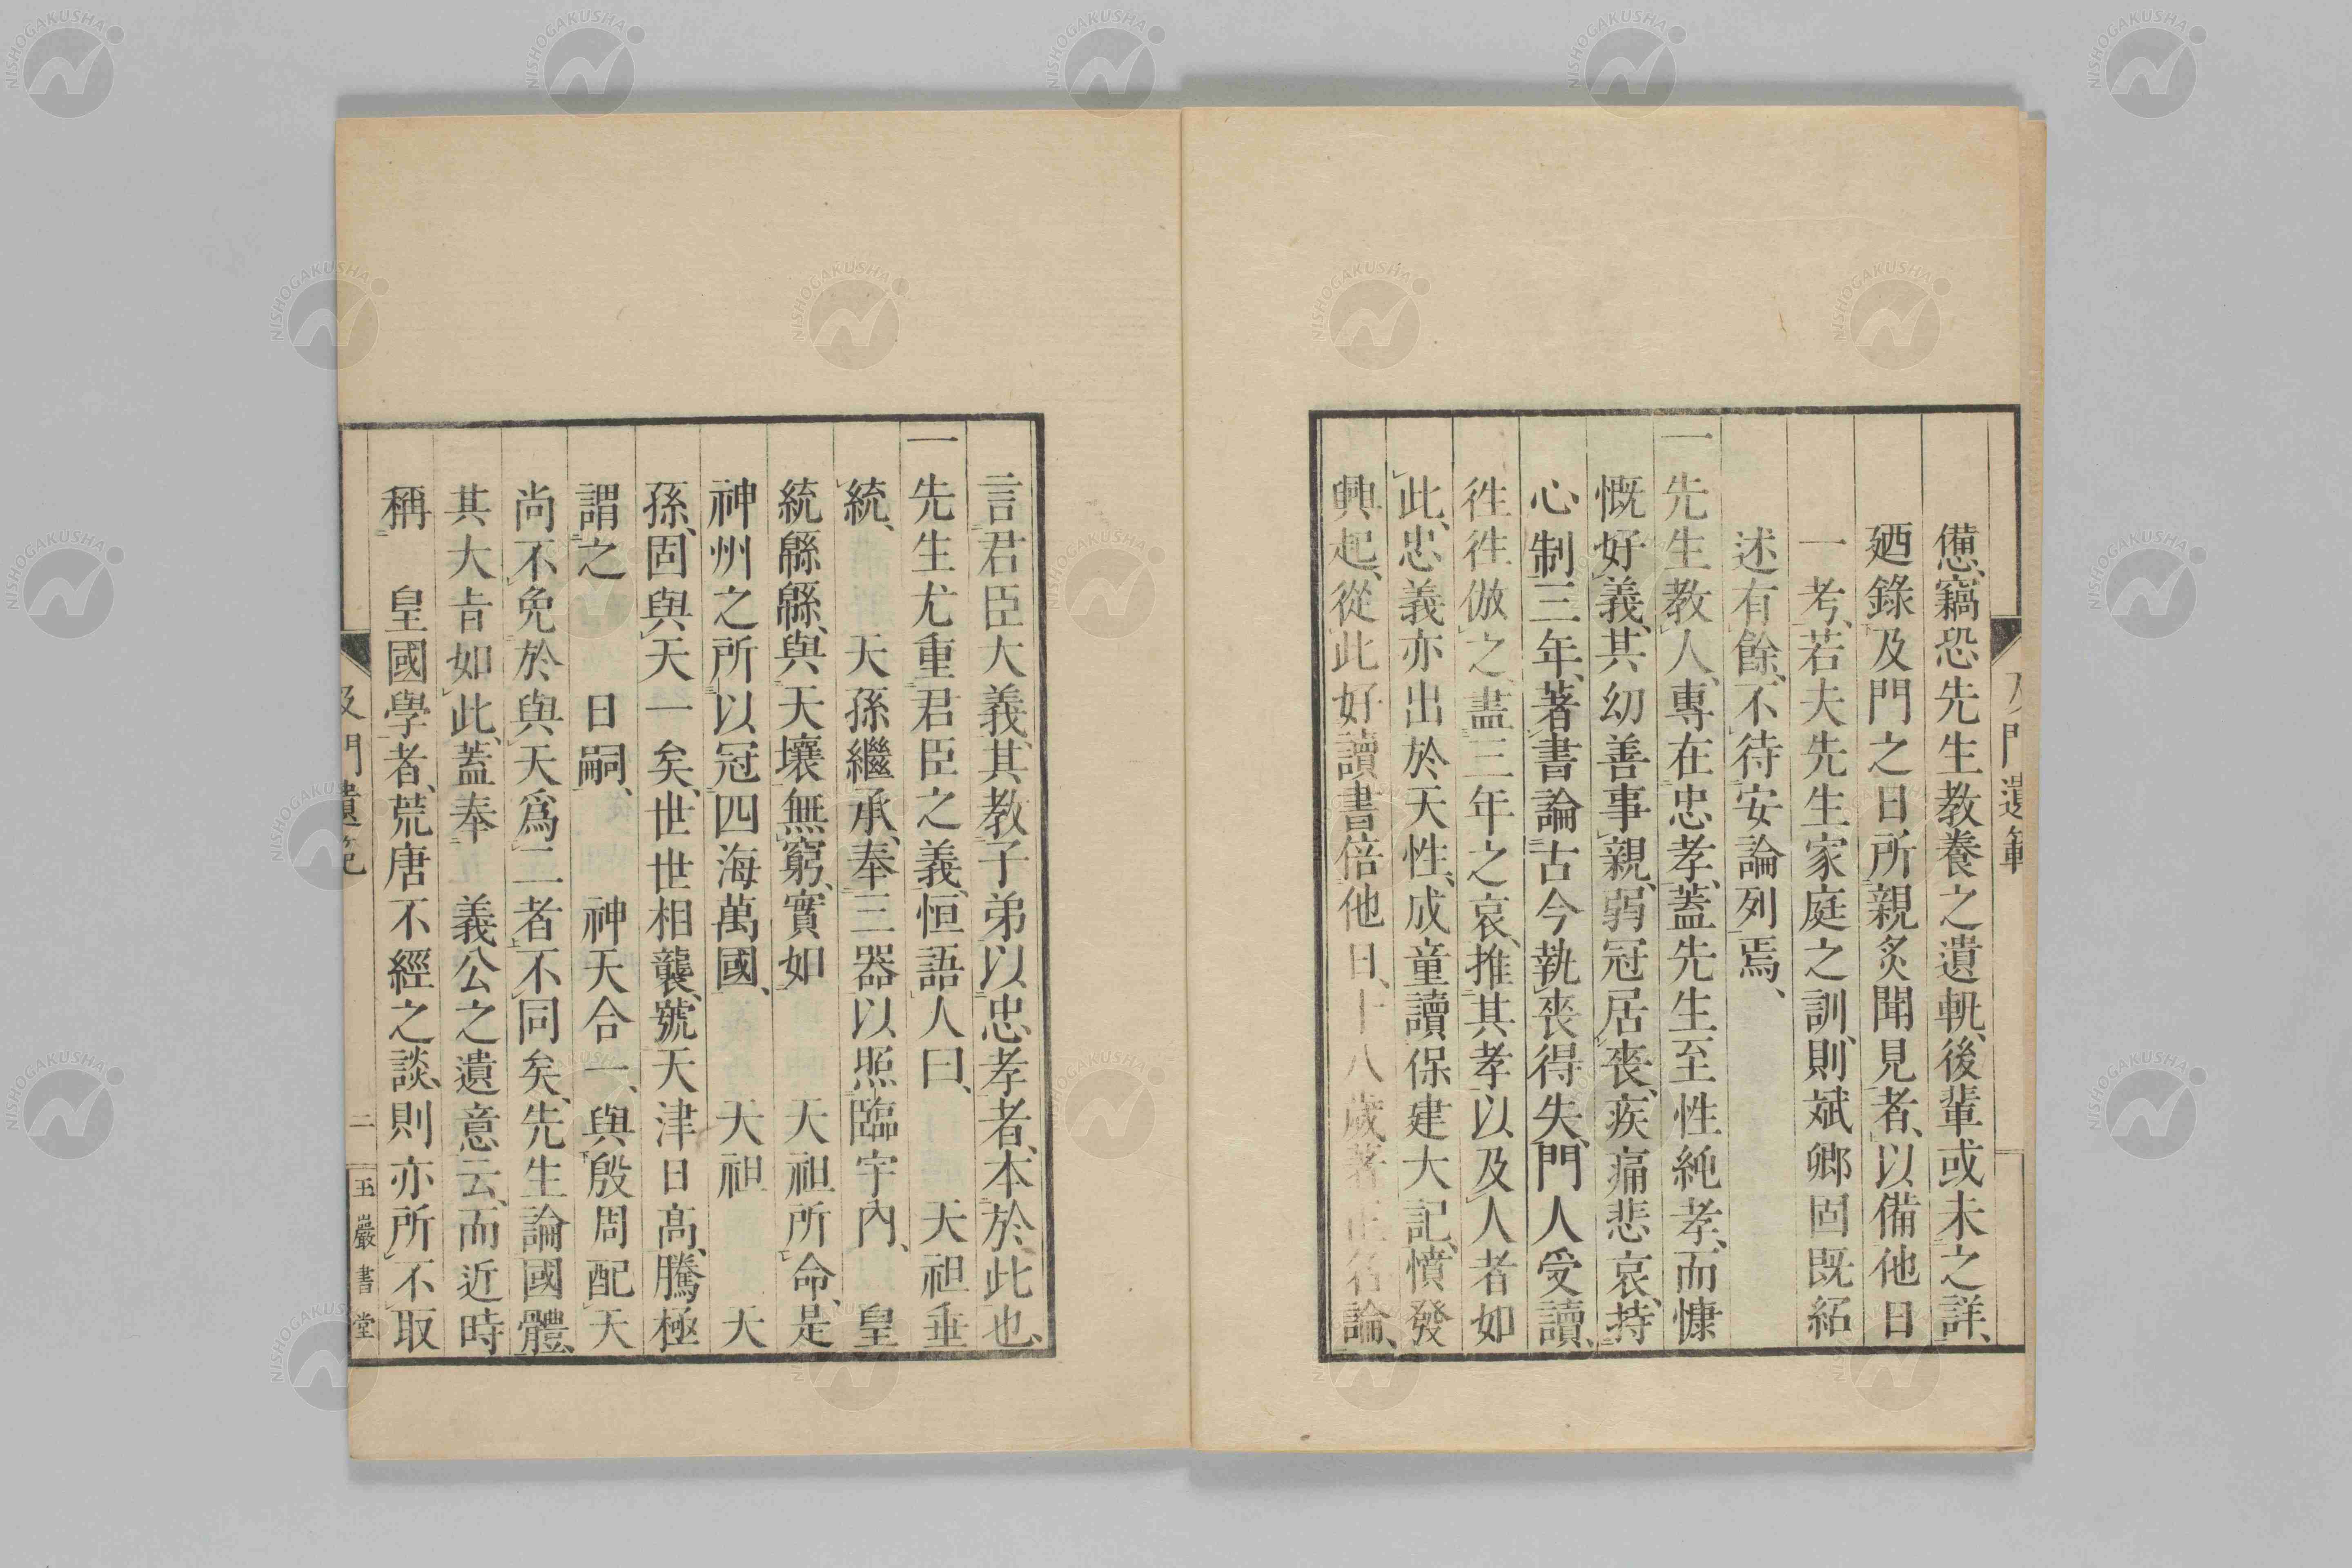 備、竊恐先生教養之遺軌、後輩或未之詳、
廼錄及門之日所親炙聞見者、以備他日
一考、若夫先生家庭之訓、則斌卿固既紹
述有餘、不待安論列焉、
一先生教人、專在忠孝、蓋先生至性純孝、而慷
慨好義、其幼善事親、弱冠居喪、疾痛悲哀、持
心制三年、著書論古今執喪得失、門人受讀、
徃徃倣之、盡三年之哀、推其孝以及人者如
此、忠義亦出於天性、成童讀保建大記、憤發
興起、從此好讀書倍他日、十八歲著正名論、
言君臣大義、其教子弟以忠孝者、本於此也、
一先生尤重君臣之義、恒語人曰、 天祖垂
統、 天孫繼承、奉三器以照臨宇內、 皇
統緜緜、與天壤無窮、實如 天祖所命、是
神州之所以冠四海萬國、 大祖 大
孫、固與天一矣、世世相襲、號天津日高、騰極
謂之 日嗣、 神天合一、與殷周配天
尚不免於與天爲二者不同矣、先生論國體、
其大旨如此、蓋奉 義公之遺意云、而近時
稱 皇國學者、荒唐不經之談、則亦所不取
及門遺範
二
玉巖書堂
NISHOGAKUSHA